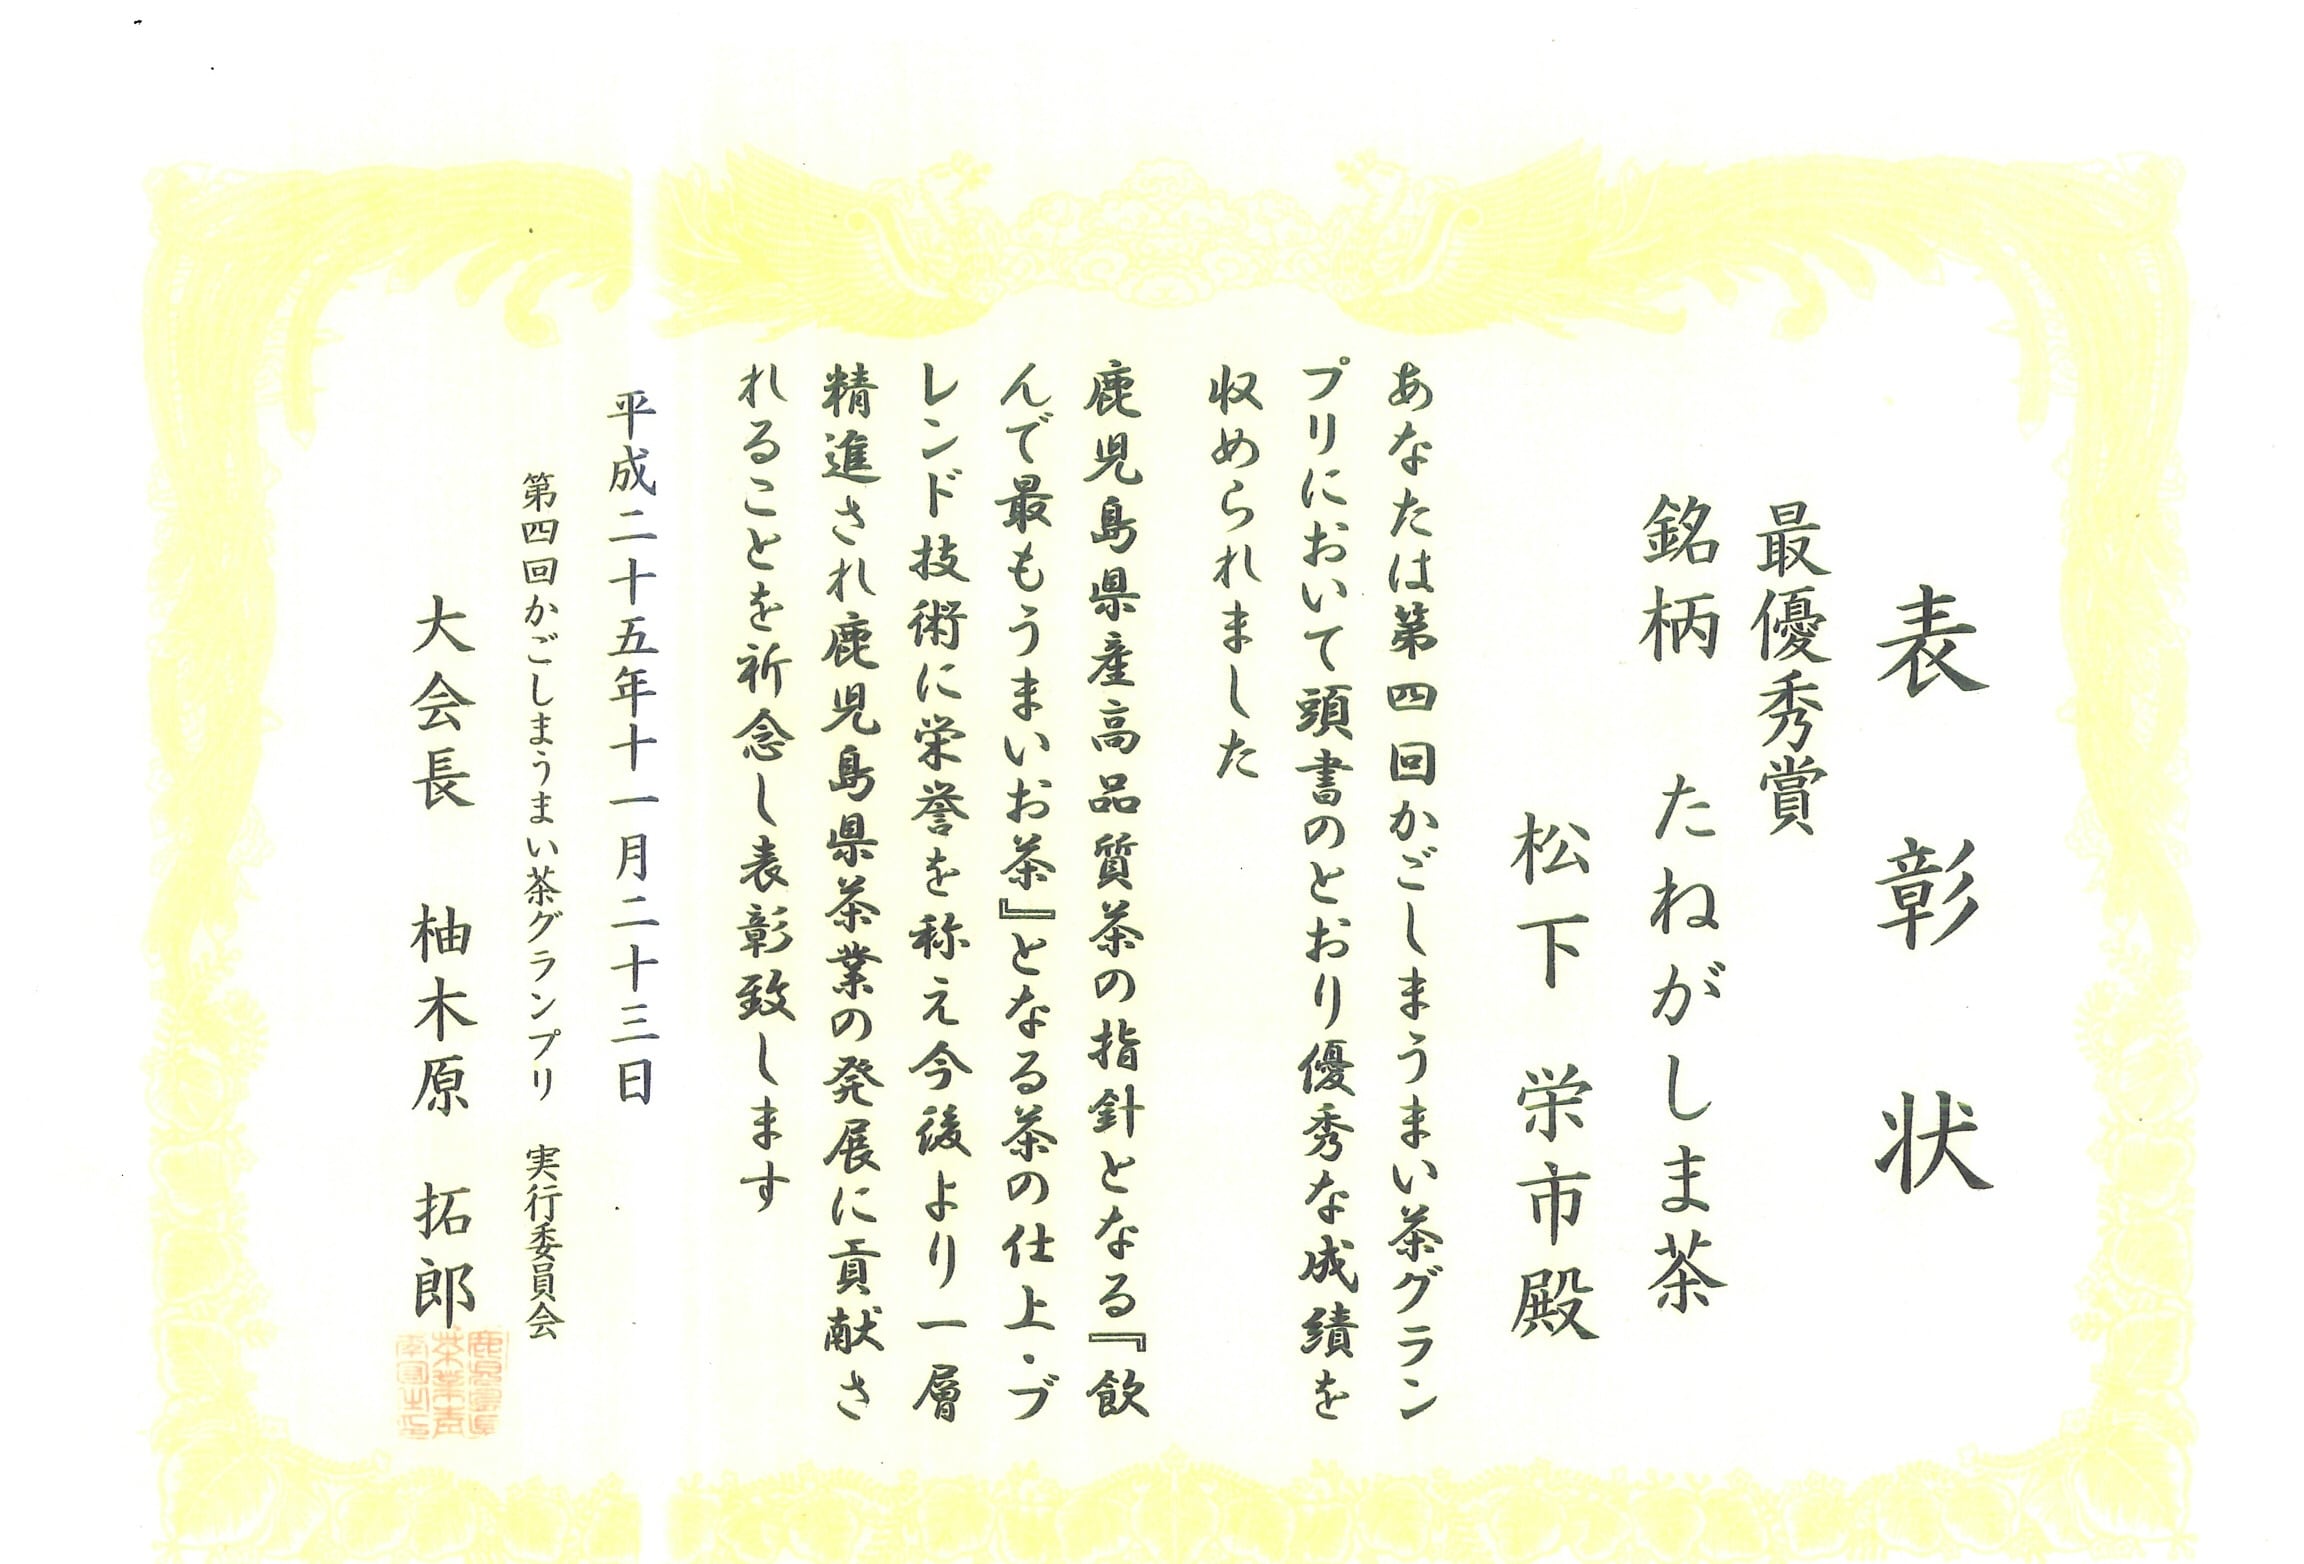 表彰状
最優秀賞
銘柄 たねがしま茶
松下 栄市殿
あなたは第四回かごしまうまい茶グラン
プリにおいて頭書のとおり優秀な成績を
収められました
鹿児島県産高品質茶の指針となる『飲
んで最もうまいお茶』となる茶の仕上・ブ
レンド技術に栄誉を称え今後より一層
精進され鹿児島県茶業の発展に貢献さ
れることを祈念し表彰致します
平成二十五年十一月二十三日
第四回かごしまうまい茶グランプリ 実行委員会
大会長 柚木原 拓郎